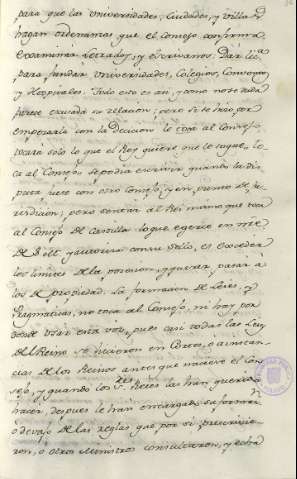 para que las Universidades, Ciudades, y Villas
hagan ordenanzas que el Consejo confirma
examina Letrados, y escrivanos. Da lic.ª
para fundar Universidades, Colegios, Conventos
y Hospitales. Todo esto es asi, y como no se duda
parece escusada su relacion, pero si se hizo por
emparejarla con la Decision le toca al Consejo
tocara solo lo que el Rey quiere que le toque, to-
ca al Consejo, se podra escrivir quando la dis-
puta fuere con otro Consejo, y en punto de ju-
risdicion; pero sentar al Rei mismo que toca
al Consejo de Castilla lo que egerce en nre
de S. M. y autoriza con su Sello, es exceder
los limites de la posesion, y querer pasar a
los de propiedad. La formacion de Leyes, y
Pragmaticas, no toca al Consejo, ni hay por
donde usar esta voz, pues casi todas las Leyes
del Reino se hicieron en Cortes, ó a instan-
cias de los Reinos antes que naciese el Conse-
jo, y quando los S.res Reyes las han querido
hacer, despues le han encargado su forma,
ó devajo de las reglas que por si prescrivie-
ron, o otros Ministros consultaron, y esta